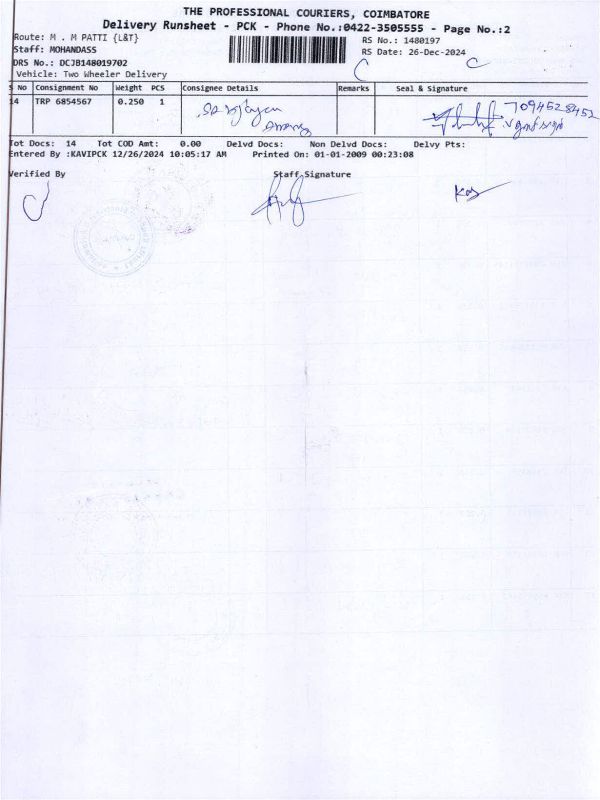 THE PROFESSIONAL COURIERS, COIMBATORE
Delivery Runsheet - PCK - Phone No.:0422-3505555 - Page No.:2
Route: M . M PATTI {L&T}
RS No.: 1480197
Staff: MOHANDASS
RS Date: 26-Dec-2024
DRS No.: DCJB148019702
Vehicle: Two Wheeler Delivery
S No Consignment No Weight PCS Consignee Details Remarks Seal & Signature
14 TRP 6854567 0.250 1 7094528452
Tot Docs: 14 Tot COD Amt: 0.00 Delvd Docs: Non Delvd Docs: Delvy Pts:
Entered By :KAVIPCK 12/26/2024 10:05:17 AM Printed On: 01-01-2009 00:23:08
Verified By Staff Signature